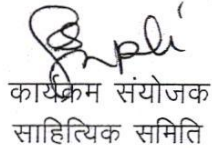 कार्यक्रम संयोजक
साहित्यिक समिति